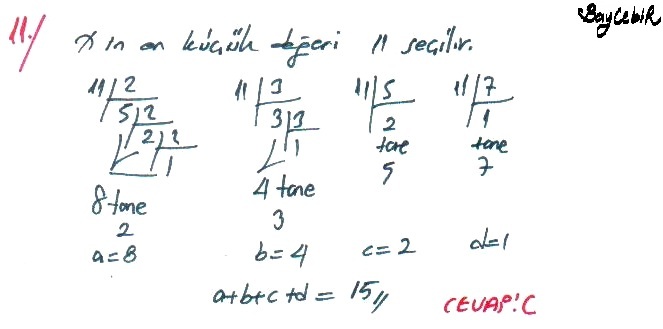 BayCebiR
11./ x in en küçük değeri 11 seçilir.
11 2 11 3 11 5 11 7
5 2 3 3 2 1
2 2 1 tane tane
1 5 7
8 tane 4 tane
2 3
a=8 b=4 c=2 d=1
a+b+c+d = 15//
CEVAP: C